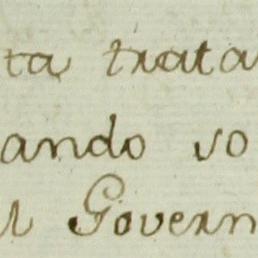 ta trata
ando so
l Govern